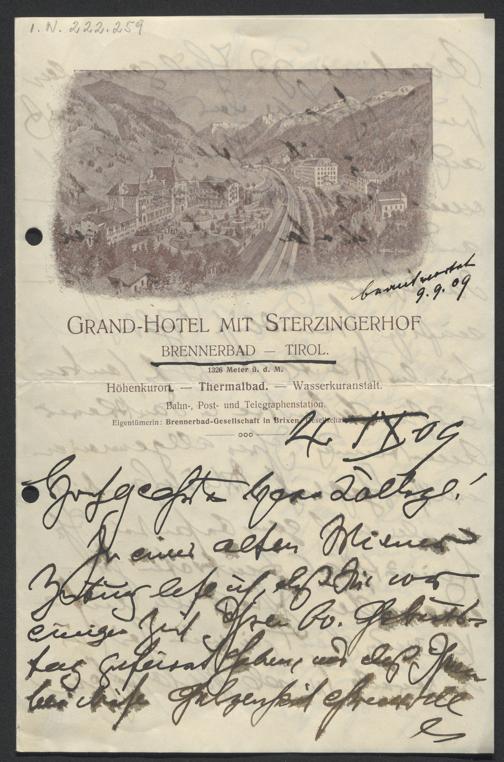 I. N. 222.259
beantwortet
9.9.09
GRAND-HOTEL MIT STERZINGERHOF
BRENNERBAD — TIROL.
1326 Meter ü. d. M.
Höhenkurort. — Thermalbad. — Wasserkuranstalt.
Bahn-, Post- und Telegraphenstation.
Eigentümerin: Brennerbad-Gesellschaft in Brixen
4. IX 09
Hochgeehrter Herr
In einer alten Wiener
Zeitung lese ich, daß Sie vor
einiger Zeit Ihren 60. Geburts-
tag gefeiert haben, und daß Ihnen
bei dieser Gelegenheit ehrenvolle